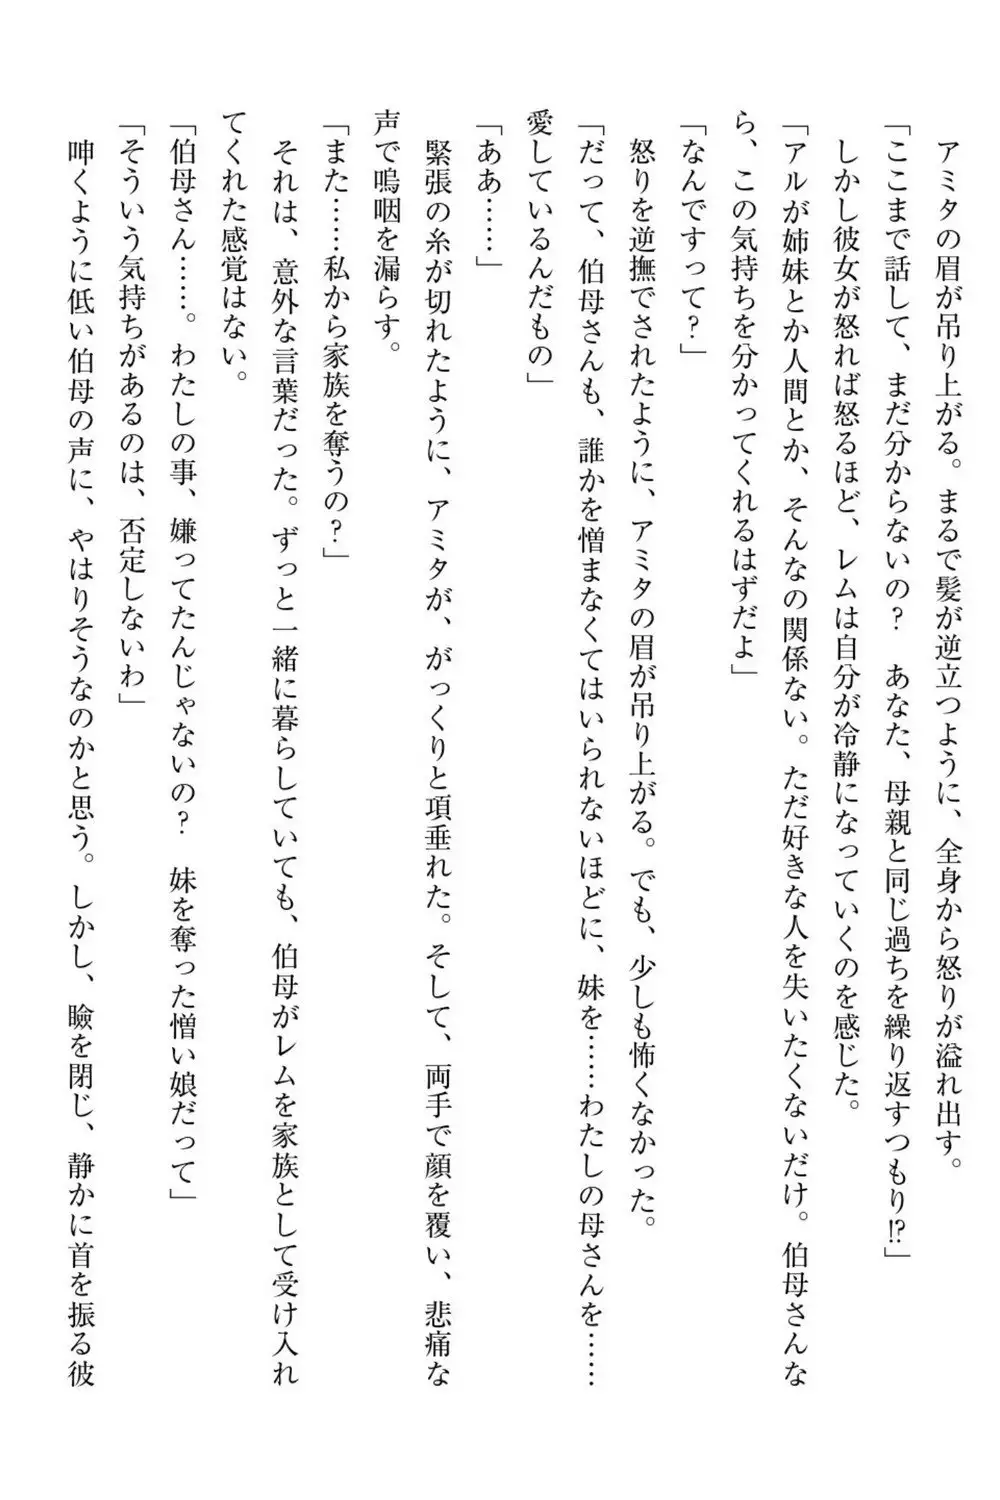 アミタの眉が吊り上がる。まるで髪が逆立つように、全身から怒りが溢れ出す。
「ここまで話して、まだ分からないの？　あなた、母親と同じ過ちを繰り返すつもり!?」
　しかし彼女が怒れば怒るほど、レムは自分が冷静になっていくのを感じた。
「アルが姉妹とか人間とか、そんなの関係ない。ただ好きな人を失いたくないだけ。伯母さんな
ら、この気持ちを分かってくれるはずだよ」
「なんですって？」
　怒りを逆撫でされたように、アミタの眉が吊り上がる。でも、少しも怖くなかった。
「だって、伯母さんも、誰かを憎まなくてはいられないほどに、妹を……わたしの母さんを……
愛しているんだもの」
「ああ……」
　緊張の糸が切れたように、アミタが、がっくりと項垂れた。そして、両手で顔を覆い、悲痛な
声で嗚咽を漏らす。
「また……私から家族を奪うの？」
　それは、意外な言葉だった。ずっと一緒に暮らしていても、伯母がレムを家族として受け入れ
てくれた感覚はない。
「伯母さん……。わたしの事、嫌ってたんじゃないの？　妹を奪った憎い娘だって」
「そういう気持ちがあるのは、否定しないわ」
　呻くように低い伯母の声に、やはりそうなのかと思う。しかし、瞼を閉じ、静かに首を振る彼